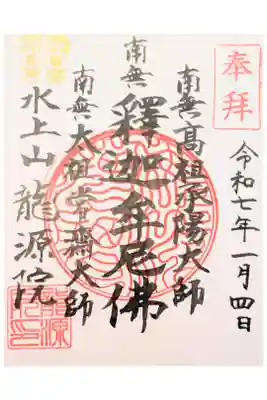 奉拝
令和七年一月四日
南無高祖承陽大師
南無釋迦牟尼佛
南無太祖常濟大師
水上山龍源院
龍源
院印